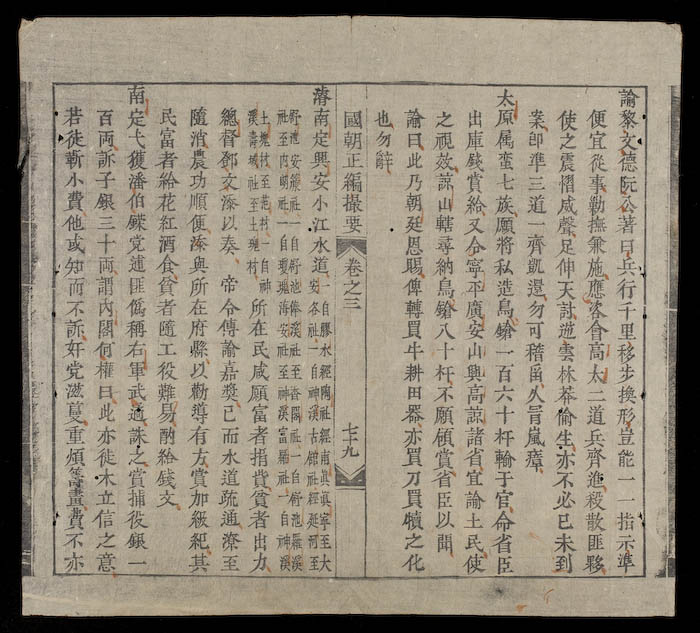 諭黎文德阮公著曰兵行千里移步換形豈能一一指示準
便宜從事勦撫兼施應咨會高太二道兵齊進殺散匪夥
使之震慴威聲足伸天討逆雲林莽偷生亦不必已未到
案即準三道一齊凱還勿可稽留久冐嵐瘴
太原属蛮七族願將私造鳥鎗一百六十杆輸于官命省臣
出庫錢賞給又令寧平廣安山興高諒諸省宜諭土民使
之視效諒山轄尋納鳥鎗八十杆不願領賞省臣以聞
諭曰此乃朝廷恩賜俾轉買牛耕田器亦買刀買犢之化
也勿辞
國朝正編撮要 卷之三 七十九
濬南定興安小江水道
一自膠水經陶社經南眞眞寧至大
安各社一自神溪古館社經延河至
舒池安縵社一自舒池俸溪社至香閣社一自舒池羅溪
社至内朗社一自瑰瑰海安社至神溪富顯社一自神溪
土瑰社至范村一自神
溪壽域社至土瑰村
所在民咸願富者捐貲貧者出力
總督鄧文添以奏 帝令傳諭嘉奬已而水道疏通潦至
隨消農功順便添與所在府縣以勸導有方賞加級紀其
民富者給花紅酒食貧者隨工役難易酌給錢文
南定弋獲潘伯鑅党逋匪偽稱右軍武通誅之賞捕役銀一
百両訴子銀三十両謂内閣何權曰此亦徙木立信之意
若徒斬小費他或知而不訴奸党滋蔓重煩籌畫費不亦